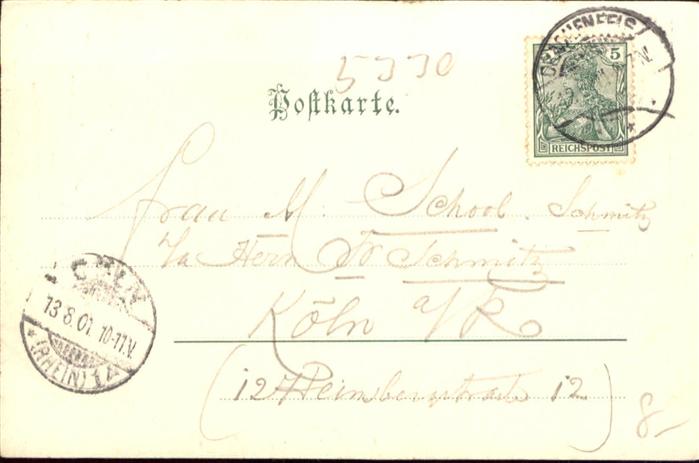 5330
Postkarte.
DRACHENFELS
5
REICHSPOST
Frau M. School Schmitz
p/a Herrn Dr Schmitz
Köln a/R
CÖLN
13.8.01. 10-11.V.
* (RHEIN) 1
(12 12)
8-